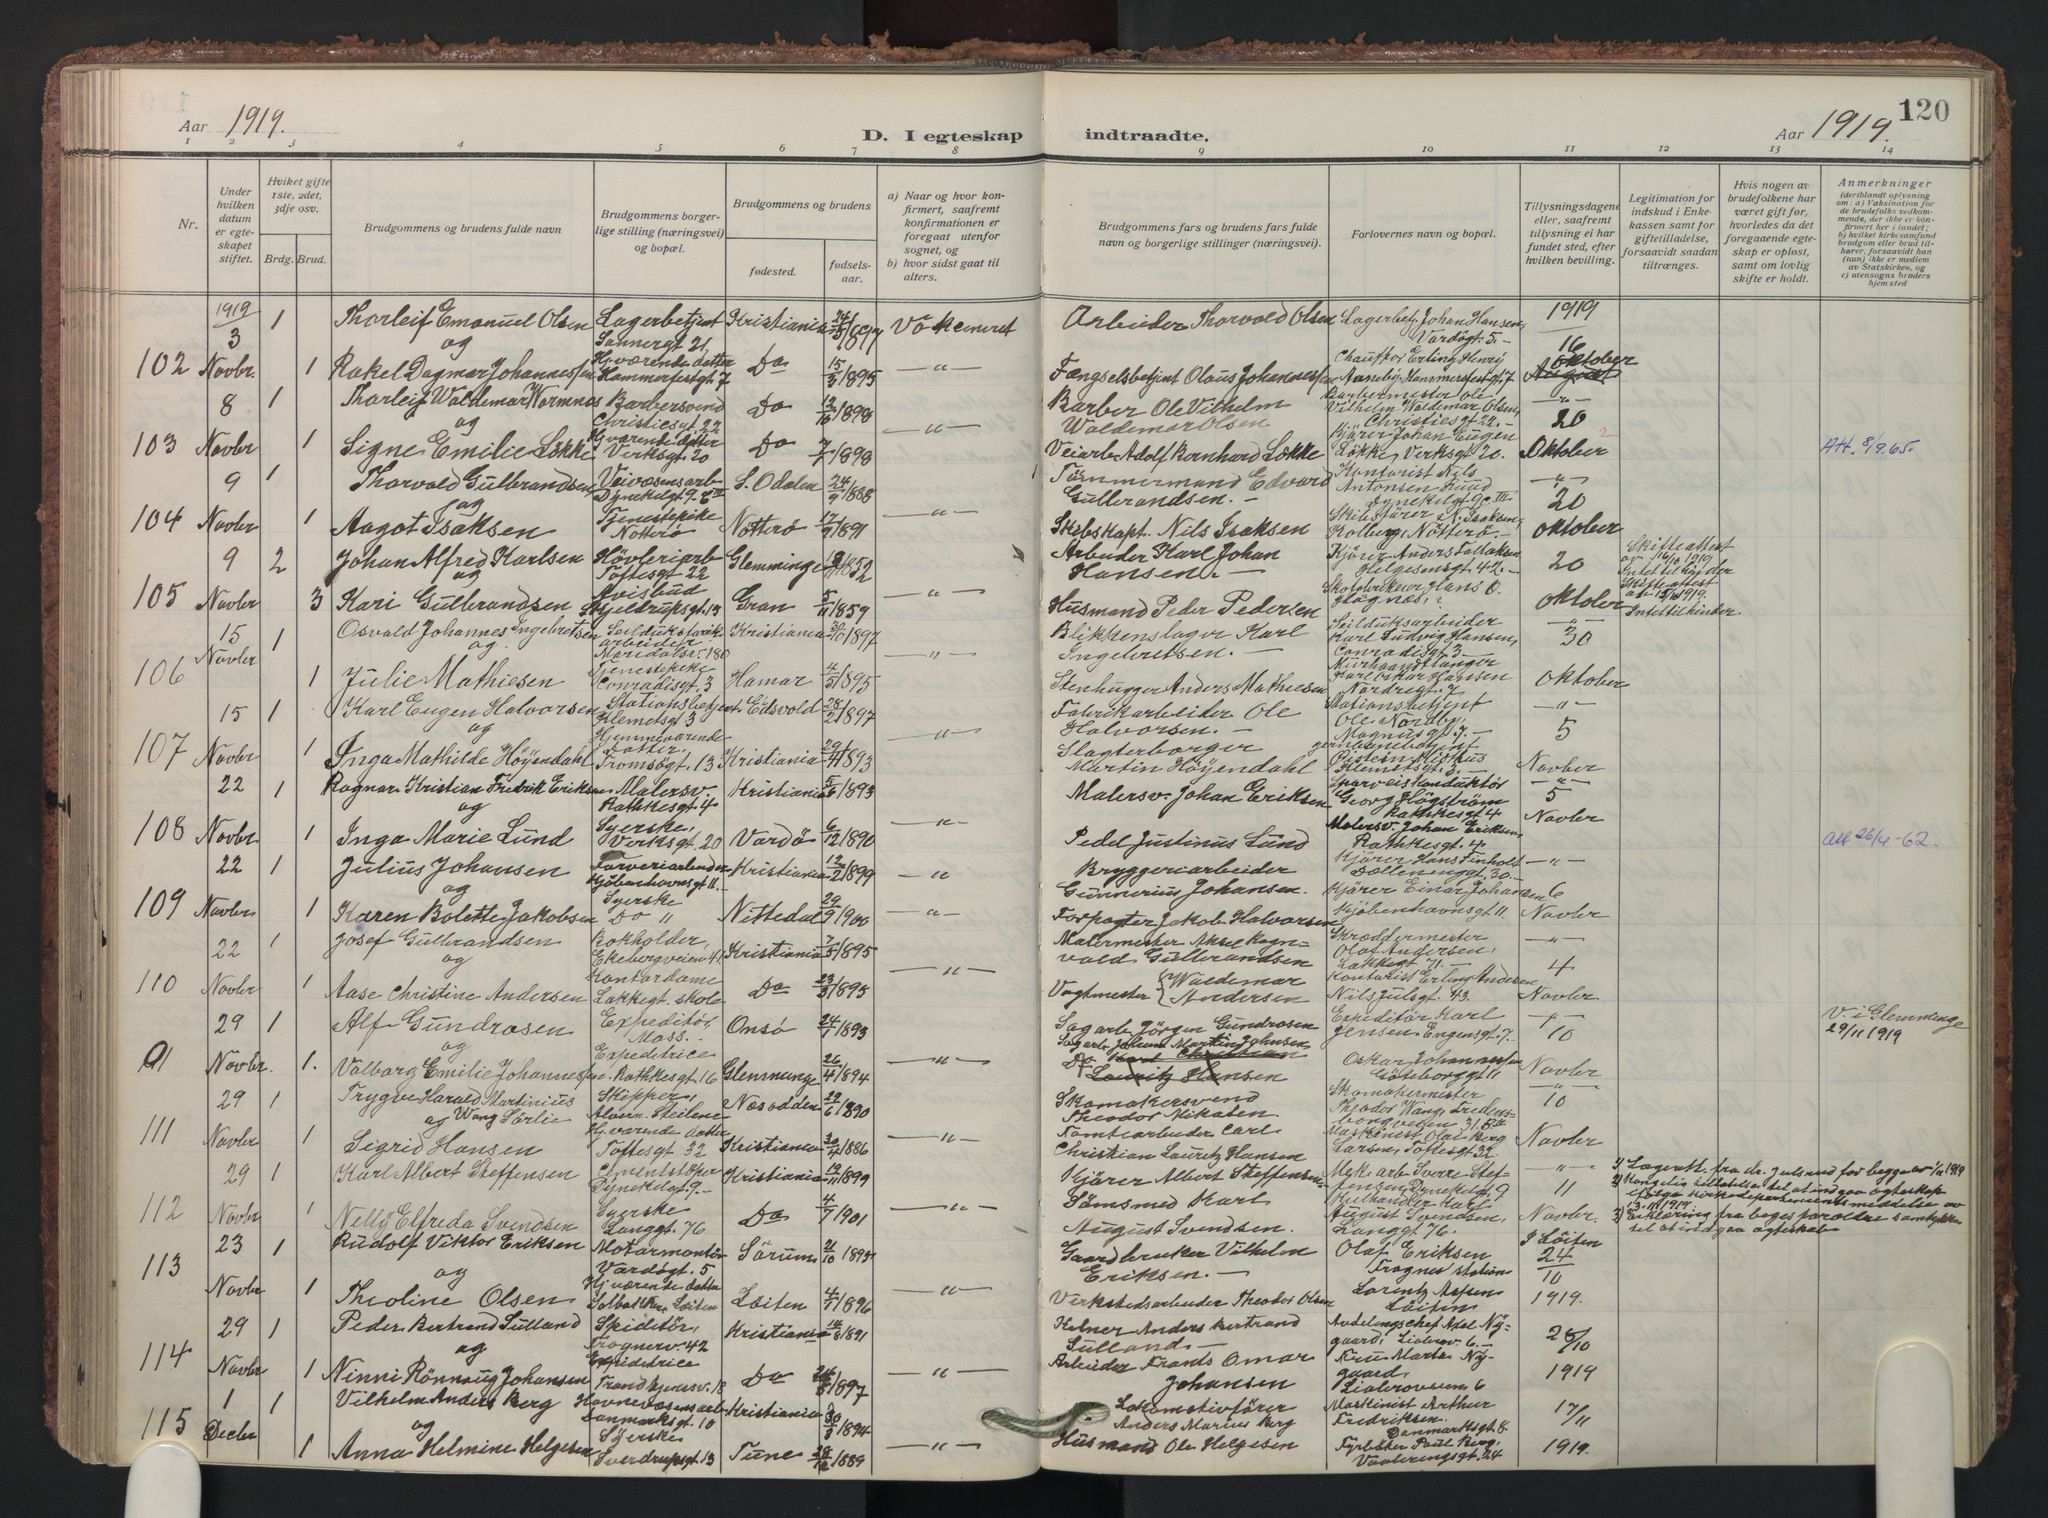 120
Aar 1919.
D. I egteskap indtraadte.
Aar 1919.
1 2 3 4 5 6 7 8 9 10 11 12 13 14
Nr.
Under hvilken datum er egteskapet stiftet.
Hviket gifte 1ste, 2det, 3dje osv.
Brdg. Brud.
Brudgommens og brudens fulde navn
Brudgommens borgerlige stilling (næringsvei) og bopæl.
Brudgommens og brudens
fødested.
fødselsaar.
a) Naar og hvor konfirmert, saafremt konfirmationen er foregaat utenfor sognet, og
b) hvor sidst gaat til alters.
Brudgommens fars og brudens fars fulde navn og borgerlige stillinger (næringsvei).
Forlovernes navn og bopæl.
Tillysningsdagene eller, saafremt tillysning ei har fundet sted, efter hvilken bevilling.
Legitimation for indskud i Enkekassen samt for giftetilladelse, forsaavidt saadan tiltrænges.
Hvis nogen av brudefolkene har været gift før, hvorledes da det foregaaende egteskap er opløst, samt om lovlig skifte er holdt.
Anmerkninger
(deriblandt oplysning om: a) Vaksination for de brudefolks vedkommende, der ikke er konfirmert her i landet; b) hvilket kirkesamfund brudgom eller brud tilhører, forsaavidt han (hun) ikke er medlem av Statskirken, og c) utensogns bruders hjemsted
1919
3 1 Thorleif Emanuel Olsen Lagerbetjent Kristiania 1897 Arbeider Thorvald Olsen Lagerbetj. Johan Hansen, 1919
og Sannergt 21, Vardøgt. 5.- 16
102 Novbr. 1 Rakel Dagmar Johannessen Hj. værende datter Hammerfestgt. 7 Do 15/3 1895 —"— Fængselsbetjent Olaus Johannessen Hammerfestgt. 7 Oktober
8 1 Thorleif Waldemar Wormnes Barbersvend Do 12/10 1898 Barber Ole Vilhelm Barbermester Ole —"—
og Christiesgt. 22 Waldemar Olsen Vilhelm Waldemar Olsen, Christiesgt 22.- 20
103 Novbr 1 Signe Emilie Løkke Hj. værende datter Verksgt. 20 Do 7/7 1898 Veiarb. Adolf Bernhard Løkke Kjører Johan Eugen Løkke, Verksgt 20. Oktober Att. 8/9.65.
9 Thorvald Gulbrandsen Veivæsensarb. S. Odalen 24/9 1888 Tømmermand Edvard Kontorist Nils —"—
og Gulbrandsen.- Antonsen Ruud 20
104 Novbr 1 Aagot Isaksen Tjenestepike Nøtterø Nøtterø 17/9 1891 —"— Skibskapt. Nils Isaksen Skibsfører N. Isaksen, Nøtterø.- oktober
9 2 Johan Alfred Karlsen Høvleriarb. Glemminge 1852 Arbeider Karl Johan Kjører Anders Skifteattest
og Toftesgt 22 Hansen.- Helgesensgt. 42.- 20 Intet til hinder
105 Novbr 3 Kari Gulbrandsen Avisbud Gran 5/11 1859 —"— Husmand Peder Pedersen oktober Skifteattest Intet til hinder.
15 1 Osvald Johannes Ingebretsen Seilduksfabrikarbeider Kristiania 1897 Blikkenslager Karl Seilduksarbeider —"—
og Maridalsv. 180 Ingebretsen.- Karl Ludvig Hansen, Conradisgt 3.- 30
106 Novbr 1 Julie Mathiesen Tjenestepike Conradisgt. 3 Hamar 4/3 1895 —"— Stenhugger Anders Mathiesen Karl Oskar Hansen Nordregt. 7 oktober
15 1 Karl Eugen Halvorsen Stationsbetjent Eidsvold 1897 Fabrikarbeider Ole Stationsbetjent —"—
og Klemetsgt 3 Halvorsen.- Ole Nordby, Magnusgt. 7.- 5
107 Novbr 1 Inga Mathilde Høyendahl Hjemmeværende Datter. Tromsøgt. 13 Kristiania 1893 —"— Slagterborger Martin Høyendahl Klemetsgt. 3. Novbr
22 1 Ragnar Kristian Fredrik Eriksen Malersv. Kristiania 1893 Malersv. Johan Eriksen Sporveiskonduktør —"—
og Rathkesgt. 4 Georg Høgstrøm Rathkesgt 4 5
108 Novbr. 1 Inga Marie Lund Syerske, Verksgt. 20 Vardø 6/12 1890 —"— Pedel Justinus Lund Malersv. Johan Eriksen, Rathkesgt. 4 Novbr Att 26/4-62.
22 1 Julius Johansen Farveriarbeider Kristiania 12/2 1899 Bryggeriarbeider Kjører Hans Finholt —"—
og Kjøbenhavnsgt 11.- Gunnerius Johansen. 30.- 6
109 Novbr 1 Karen Bolette Jakobsen Syerske Do " Nittedal 29/9 1900 —"— Forpagter Jakob Halvorsen Kjører Einar Johansen Kjøbenhavnsgt 11. Novbr
22 1 Josef Gulbrandsen Bokholder, Kristiania 1895 Malermester Aksel Ragn- Skræddermester —"—
og Ekebergveien 41. vald Gulbrandsen Olaf Andersen, Lakkegt 71.- 4
110 Novbr 1 Aase Christine Andersen Kontordame Lakkegt. skole Do 23/3 1895 —"— Vagtmester Waldemar Andersen Kontorist Erling Andersen Nils Julsgt. 43. Novbr
29 1 Alf Gundrosen Expeditør, Onsø 24/7 1893 Sagarb. Jørgen Gundrosen Expeditør Karl —"— V. i Glemminge
og Moss.- Sagarb. Johan Martin Johnsen Jensen, Engensgt. 7. 10 29/11 1919
91 Novbr. 1. Valborg Emilie Johannessen. Expeditrice Rathkesgt. 16 Glemminge 26/4 1894 —"— Do Karl Christian Lauritz Hansen Oskar Johannessen Gøteborggt 11 Novbr
29 1 Trygve Harald Martinius Skipper, Næsodden 1890 Skomakersvend Skomakermester —"—
og Wang Sørlie Alværn Steilene Theodor Mikalsen Theodor Wang, 10
111 Novbr 1 Sigrid Hansen Hj. værende datter Toftesgt 32 Kristiania 30/4 1886 —"— Tomtearbeider Carl Christian Lauritz Hansen Maskinist Olai Berg Larsen, Toftesgt 32. Novbr
29 1 Karl Albert Steffensen Kristiania 12/11 1899 Kjører Albert Steffensen Mek. arb. Sverre Stef- —"— 1) Lægeatt. fra dr. for begge
Dynekilgt. 9.- Sømsmed Karl fensen Dynekilgt. 9 11 2) Kongelig tilladelse til at indgaa egteskap
112 Novbr 1 Nelly Elfreda Svendsen Syerske Langgt. 76 Do 4/7 1901 —"— August Svendsen. August Svendsen, Langgt 76. Novbr. 3) Erklæring fra begges forældre samtykke til at indgaa egteskab
23 1 Rudolf Viktor Eriksen Motormontør Sørum 2/10 1893 Gaardbruker Vilhelm Olaf Eriksen I Løiten
113 og Vardøgt. 5 Eriksen.- Frogner station 24/10
Novbr 1 Theoline Olsen Hj. værende datter Løiten Løiten 4/7 1896 —"— Verkstedsarbeider Theodor Olsen Lorentz Løiten 1919.
29 1 Peder Bertrand Sulland Kristiania 1891 Anders Bertrand Avdelingschef Axel Ny-
114 og Frognerv. 42 Sulland.- gaard, 6.- 28/10
Novbr 1 Ninni Rønnaug Johansen Expeditrice Trondhjemsv. 18 Do 1897 —"— Arbeider Frants Omar Johansen Fru Marta Nygaard 6 1919
1 1 Vilhelm Anders Berg Havnevæsensarb. Kristiania 1894 Lokomotivfører Maskinist Arthur 17/11
115 Decbr og Danmarksgt. 10 Anders Marius Berg Fredriksen. Danmarksgt. 8.
1 Anna Helmine Helgesen Syerske Sverdrupsgt. 13 Tune 1889 —"— Husmand Ole Helgesen Fyrbøter Paul Berg, Vaaleringsgt. 24 1919.